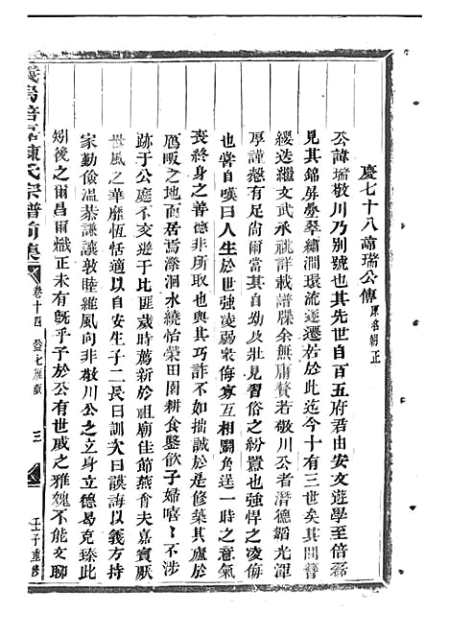 慶七十八諱瑞公傳原名朝正
公諱瑞敬川乃別號也其先世自百五府君由安文遊學至倍磊
見其錦屏旁翠繡澗環流遂遷若於此迄今十有三世矣其間簪
纓迭繼文武承祧詳載譜牒余無庸贅若敬川公者潛德韜光渾
厚謹愨有足尚爾當其自幼及壯見習俗之紛囂也強悍之凌侮
也嘗自嘆曰人生於世強凌弱衆侮寡互相鬭角逞一時之意氣
喪終身之善德非所取也與其巧詐不如拙誠於是修築其廬於
鴈畈之地而居焉滌洞水繞怡榮田園耕食鑿飲子婦嘻嘻不涉
跡于公庭不交遊于比匪歲時薦新於祖廟佳節燕會夫嘉賓厭
世風之華靡恆恬適以自安生子二長曰訓次曰謨誨以義方持
家勤儉溫恭謙讓敦睦雍風向非敬川公之立身立德曷克臻此
矧後之爾昌爾熾正未有旣乎予於公有世戚之雅媿不能文聊
義烏倍磊陳氏宗譜前集
卷十四
三
壬子重修